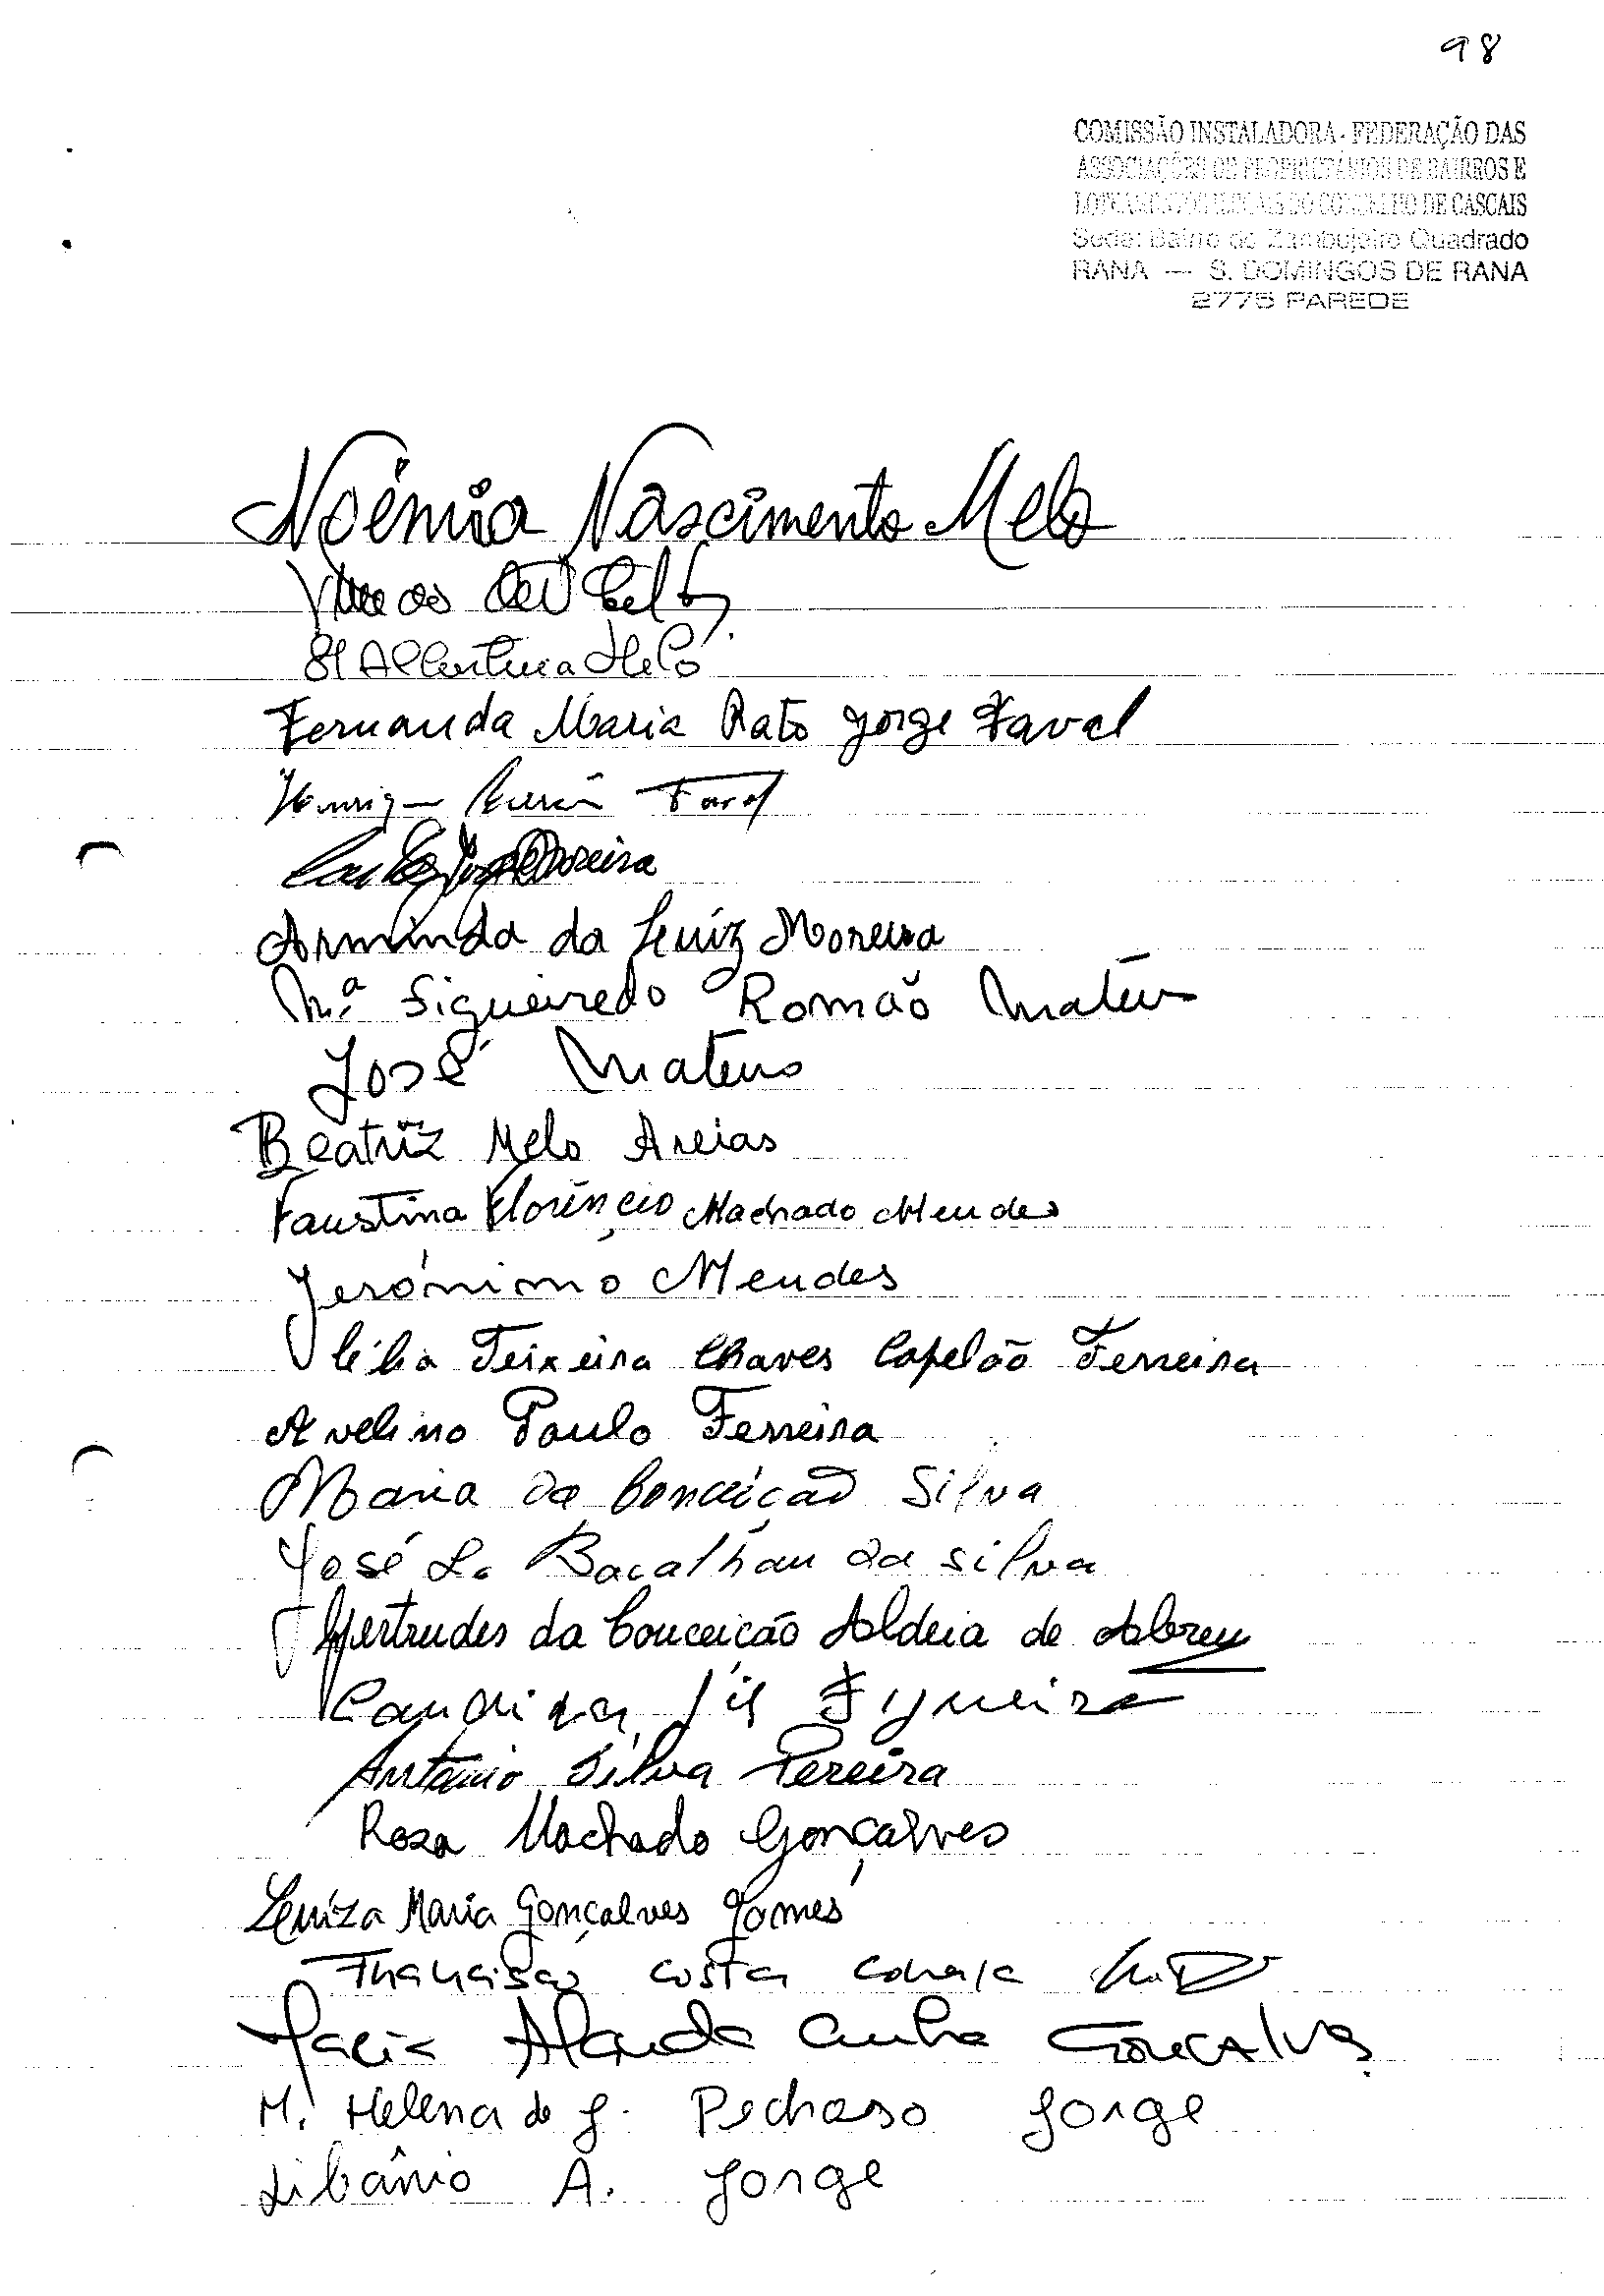 98
COMISSÃO INSTALADORA - FEDERAÇÃO DAS
ASSOCIAÇÕES DE PROPRIETÁRIOS DE BAIRROS E
LOTEAMENTOS ILEGAIS DO CONCELHO DE CASCAIS
Sede: Bairro do Zambujeiro Quadrado
RANA — S. DOMINGOS DE RANA
2775 PAREDE
Noémia Nascimento Melo
Melo
Fernanda Maria Rato Jorge Faval
Moreira
Arminda da Moreira
Mª Siqueiredo Romão Mateus
José Mateus
Beatriz Melo Areias
Faustina Florêncio Machado Mendes
Jerónimo Mendes
Célia Teixeira Chaves Capelão Ferreira
Avelino Paulo Ferreira
Maria da Conceição Silva
José L. Bacalhau da Silva
Gertrudes da Conceição Aldeia de Abreu
António Silva Pereira
Rosa Machado Gonçalves
Maria Gonçalves Gomes
Costa
Maria Cunha Gonçalves
M. Helena de J. Pedroso Jorge
Libânio A. Jorge